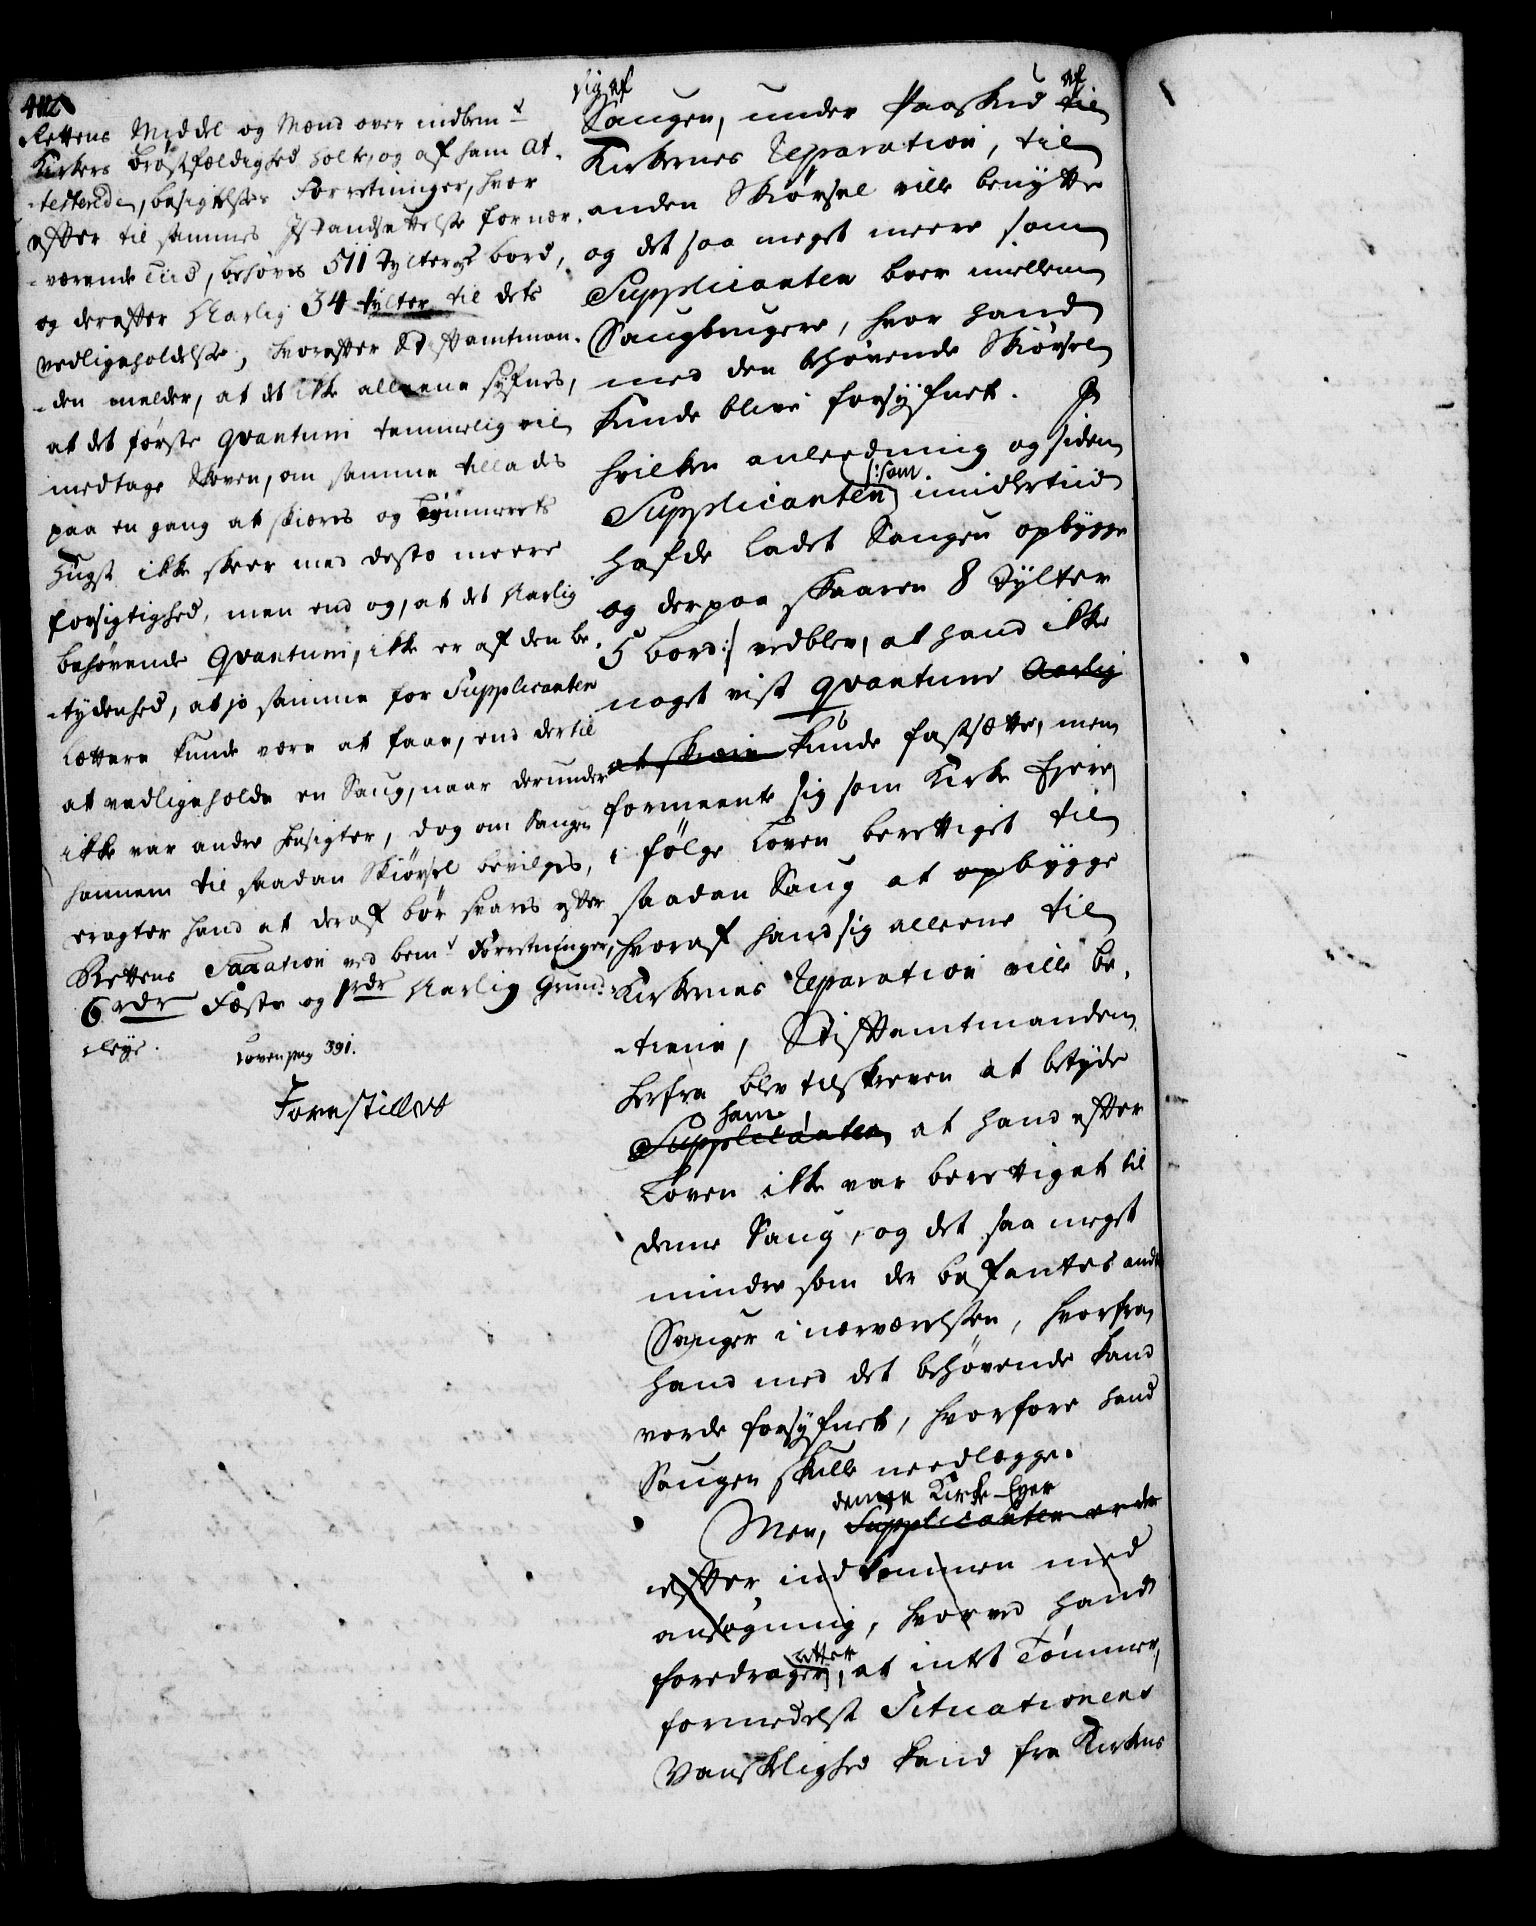 402
Rettens Middel og Mænd over indbem.te
Kirkers Brøstfældighed holte, og af ham At-
-testerede, besigtelses Forretninger, hvor
efter til sammes Istandsættelse for nær-
-værende Tiid, behøves 511 Tylter 5 bord,
og derefter Aarlig 34 tylter til dets
vedligeholdelse, hvorefter Stiftamtman-
-den melder, at det ikke alleene syfnes,
at det første Qvantum temmelig vil
medtage Skoven, om samme tillades
paa en gang at skiæres og Tømmerets
Hugst ikke skeer med desto meere
forsigtighed, men end og, at det Aarlig
behøvende Qvantum, ikke er af den be-
-tydenhed, at jo samme for Supplicanten
lættere kunde være at faae, end dertil
at vedligeholde en Saug, naar derunder
ikke var andre hensigter, dog om Saugen
hannem til saadan Skiørsel bevilges,
eragter hand at deraf bør svares efter
Rettens Taxation ved bem.te Forretninger,
6 rdr Fæste og 1 rdr Aarlig Grund-
-leye.
Loven pag 391.
Forestillet
sig af
Saugen, under Paaskud af til
Kirkernes Reparation, til
anden Skiørsel ville benytte
og det saa meget meere som
Supplicanten boer mellem
Saugbrugere, hvor hand
med den behøvende Skiørsel
kunde blive forsyfnet. Jn
hvilken anleedning og siden
Supplicanten /:som imidlertiid
hafde ladet Saugen opbygge
og derpaa skaaren 8 Tylter
5 bord:/ vedblev, at hand ikke
noget vist qvantum Aarlig
at skære kunde fastsætte, men
formeente sig som Kirke Ejere
i følge Loven berettiget til
saadan Saug at opbygge
hvoraf hand sig alleene til
Kirkernes Reparation ville be-
-tiene, Stiftamtmanden
herfra blev tilskreven at betyde
ham
Supplicanten, at hand efter
Loven ikke var berettiget til
denne Saug, og det saa meget
mindre som der befantes andre
Sauger i nærværelsen, hvorfra
hand med det behøvende kand
vorde forsyfnet, hvorfore hand
Saugen skulle needlegge.
denne Kirke-Eyer
Men, Supplicanten er der
efter indkommen med
ansøgning, hvorved hand
foredrager atter, at intet Tømmer,
formedelst Situationens
Vanskelighed kand fra Kirkens